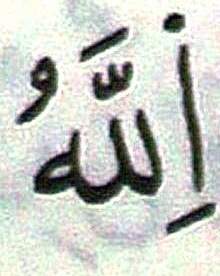 اِللَّهُ